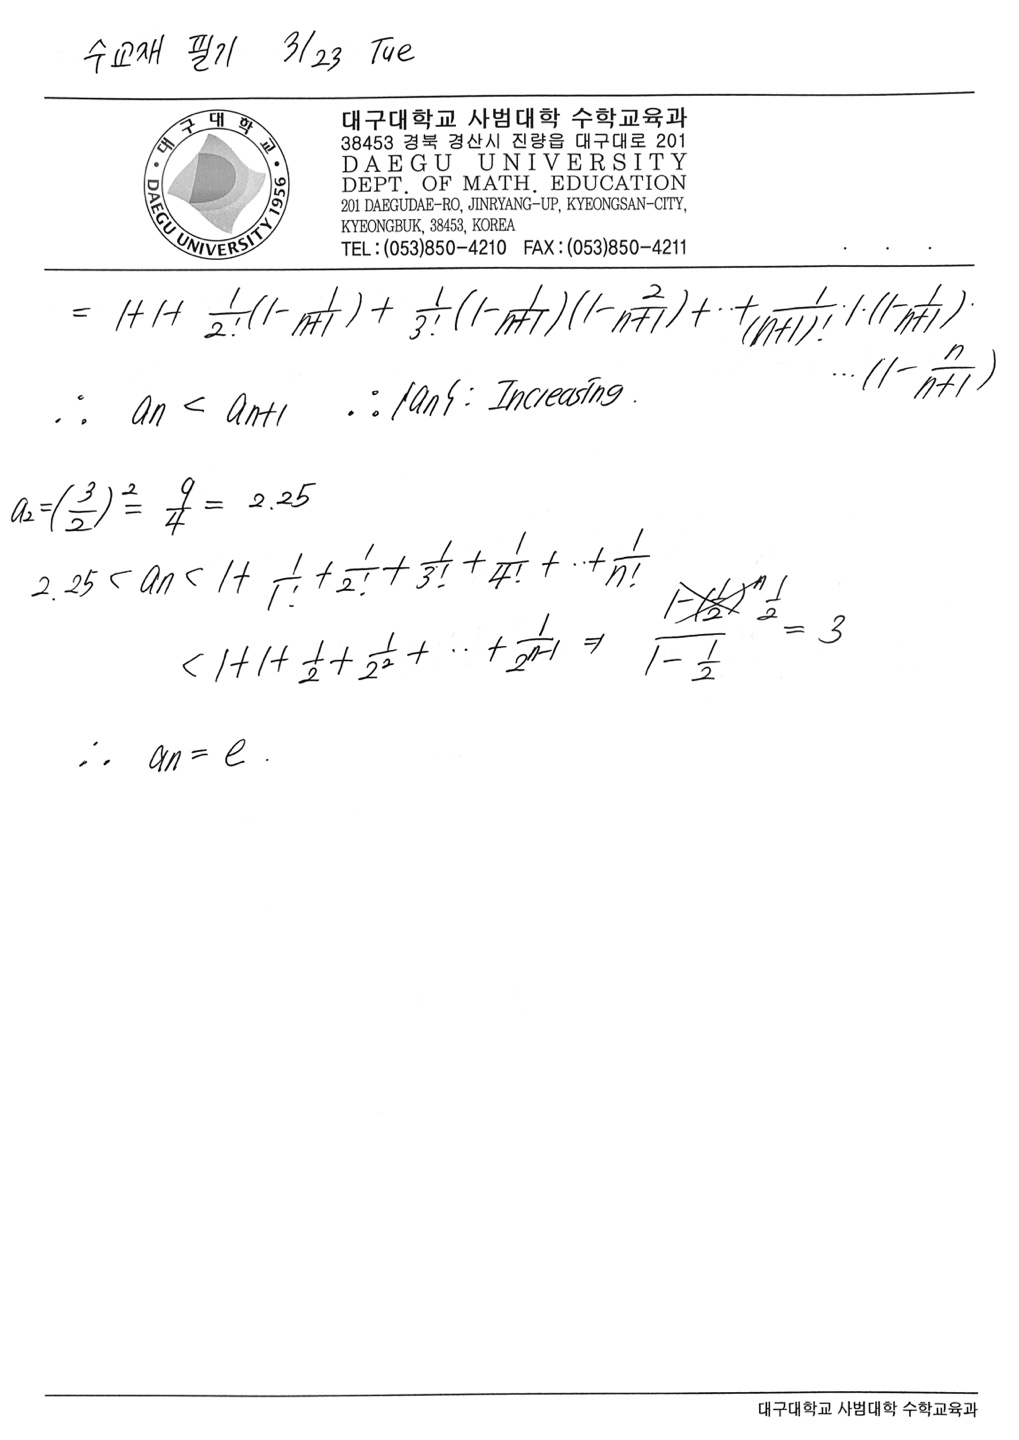 수교재 필기 3/23 Tue
대구대학교
DAEGU UNIVERSITY 1956
대구대학교 사범대학 수학교육과
38453 경북 경산시 진량읍 대구대로 201
DAEGU UNIVERSITY
DEPT. OF MATH. EDUCATION
201 DAEGUDAE-RO, JINRYANG-UP, KYEONGSAN-CITY,
KYEONGBUK, 38453, KOREA
TEL : (053)850-4210 FAX : (053)850-4211 . . .
= 1+1+ 1/2! (1- 1/n+1) + 1/3! (1- 1/n+1)(1- 2/n+1) + ·· + 1/(n+1)! ·1·(1- 1/n+1)·
···(1- n/n+1)
∴ an < an+1 ∴ {an} : Increasing.
a2 = (3/2)² = 9/4 = 2.25
2.25 < an < 1+ 1/1! + 1/2! + 1/3! + 1/4! + ·· + 1/n!
< 1+1+ 1/2 + 1/2² + ·· + 1/2ⁿ⁻¹ ⇒ 1-(1/2)ⁿ 1/2 / 1- 1/2 = 3
∴ an = e .
대구대학교 사범대학 수학교육과